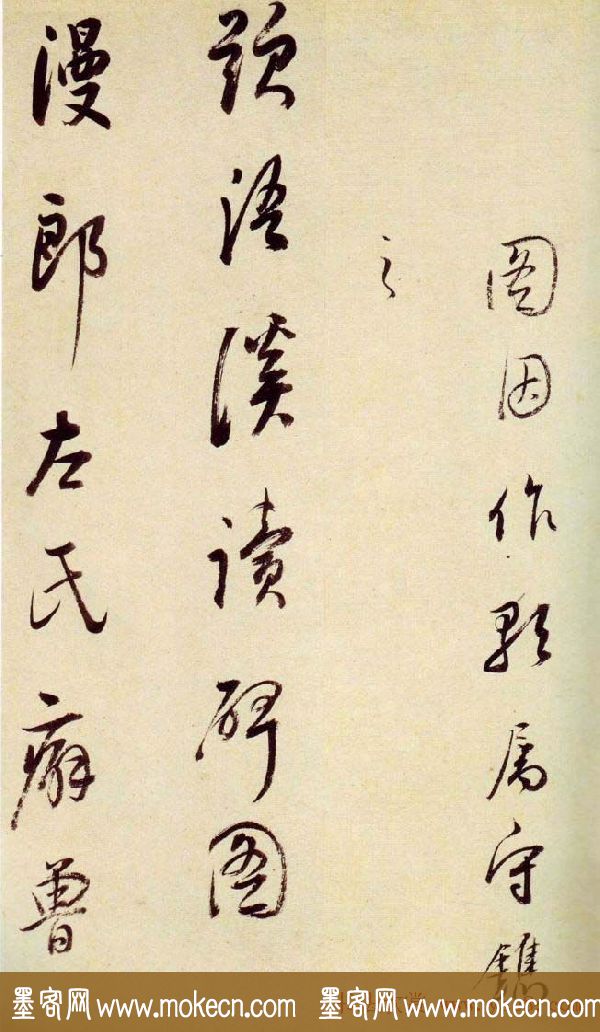 圖因作歌属守鐫
之
題浯溪讀碑圖
漫郎左氏癖魯
墨客网www.mokecn.com 墨客网www.mokecn.com